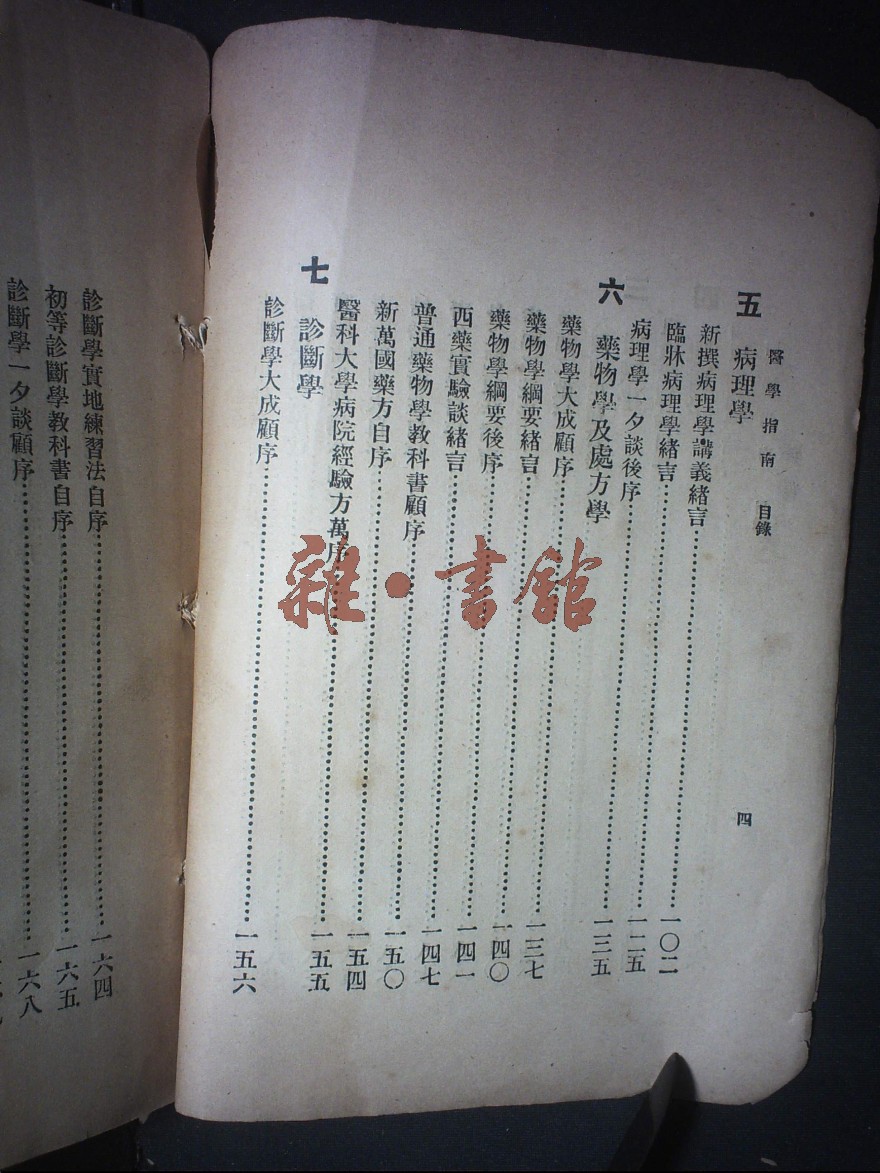 醫學指南 目錄 四
五 病理學
新撰病理學講義緒言……一〇二
臨牀病理學緒言……一二五
病理學一夕談後序……一三五
六 藥物學及處方學
藥物學大成顧序……一三七
藥物學綱要緒言……一四〇
藥物學綱要後序……一四一
西藥實驗談緒言……一四七
普通藥物學教科書顧序……一五〇
新萬國藥方自序……一五四
醫科大學病院經驗方萬序……一五五
七 診斷學
診斷學大成顧序……一五六
診斷學實地練習法自序……一六四
初等診斷學教科書自序……一六五
診斷學一夕談顧序……一六八
雜·書館